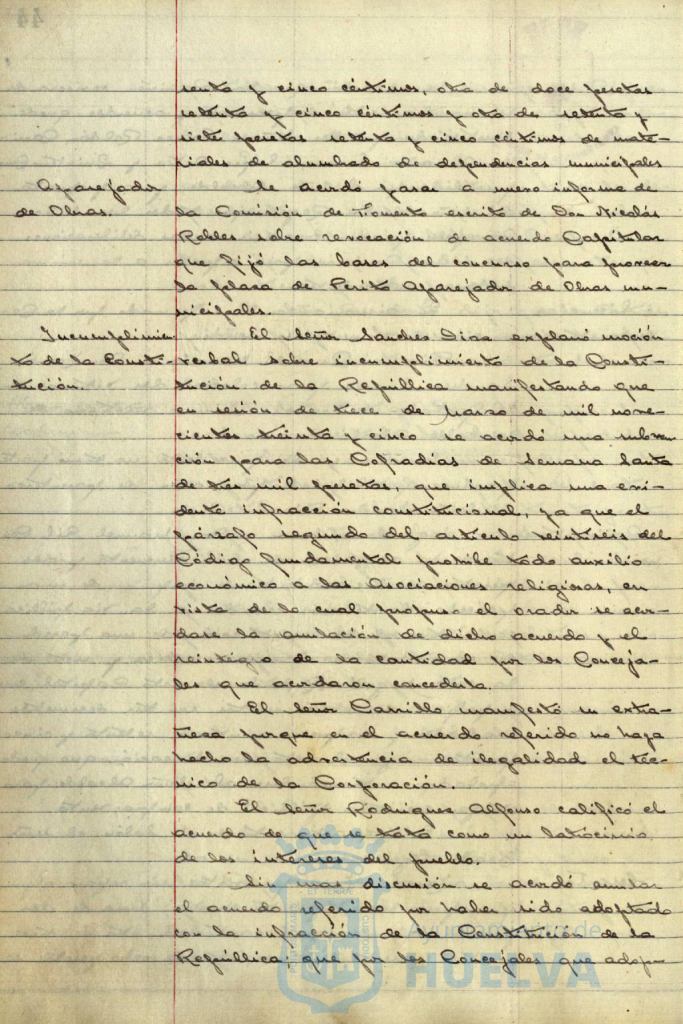 senta y cinco céntimos, otra de doce pesetas
setenta y cinco céntimos y otra de setenta y
siete pesetas setenta y cinco céntimos de mate-
riales de alumbrado de dependencias municipales
Aparejador
de Obras.
Se acordó pasar a nuevo informe de
la Comisión de Fomento escrito de Don Nicolás
Robles sobre revocación de acuerdo Capitular
que fijó las bases del concurso para proveer
la plaza de Perito Aparejador de Obras mu-
nicipales.
Incumplimien-
to de la Consti-
tución.
El Señor Sanchez Diaz explanó moción
verbal sobre incumplimiento de la Consti-
tución de la República manifestando que
en sesión de trece de Marzo de mil nove-
cientos treinta y cinco se acordó una subven-
ción para las Cofradías de Semana Santa
de tres mil pesetas, que implica una evi-
dente infracción constitucional, ya que el
párrafo segundo del artículo veintiseis del
Código fundamental prohibe todo auxilio
económico a las Asociaciones religiosas, en
vista de lo cual propuso el orador se acor-
dase la anulación de dicho acuerdo y el
reintegro de la cantidad por los Conceja-
les que acordaron concederla.
El Señor Carrillo manifestó su extra-
ñeza porque en el acuerdo referido no haya
hecho la advertencia de ilegalidad el téc-
nico de la Corporación.
El Señor Rodriguez Alfonso calificó el
acuerdo de que se trata como un latrocinio
de los intereses del pueblo.
Sin mas discusión se acordó anular
el acuerdo referido por haber sido adoptado
con la infracción de la Constitución de la
República; que por los Concejales que adop-
Ayuntamiento de
HUELVA